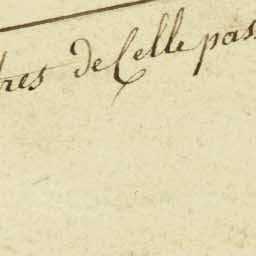 tres de Celle pas